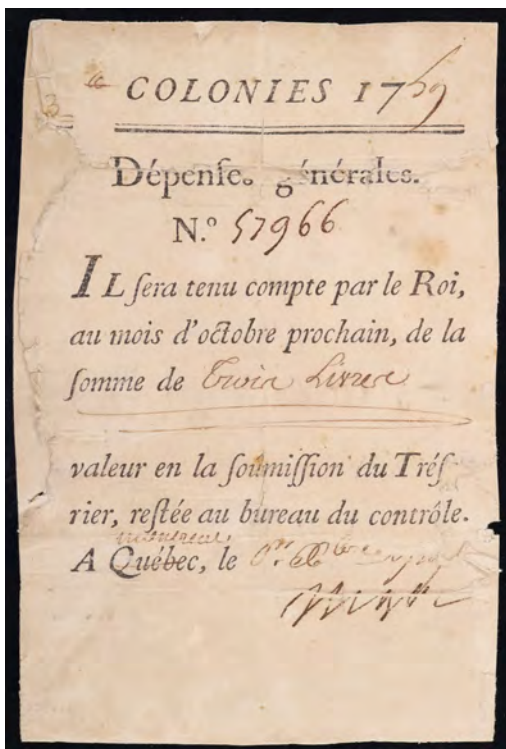 3 "
COLONIES 1759
Dépenſes générales.
N.º 57966
IL ſera tenu compte par le Roi,
au mois d'octobre prochain, de la
ſomme de Trois Livres
valeur en la ſoumiſſion du Tréſ
rier, reſtée au bureau du contrôle.
montreal
A Québec, le